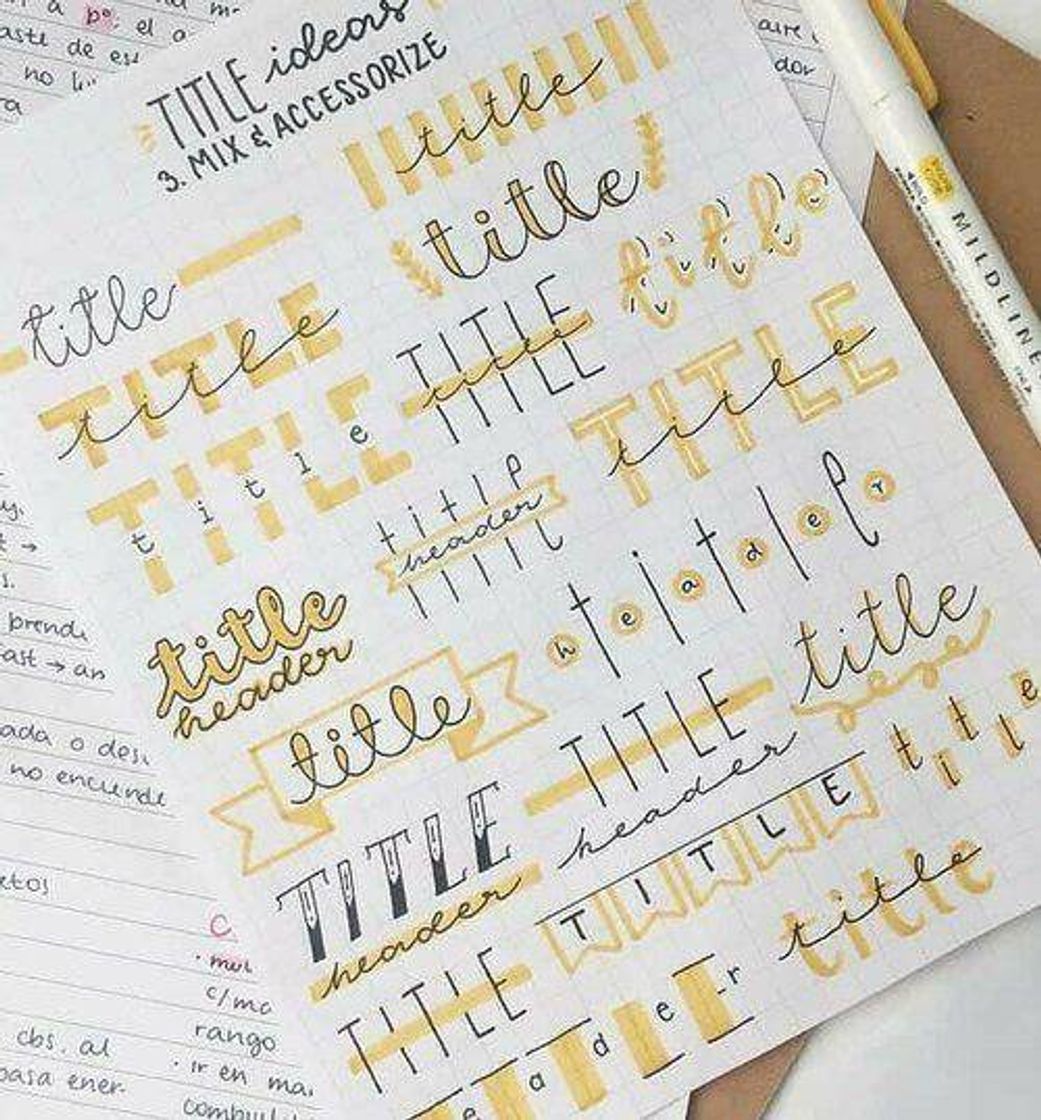 TITLE ideas
3. MIX & ACCESSORIZE
title
title
title
title
title
TITLE
title
TITLE
title
TITLE
title
TITLE
title
title
header
title
header
title
header
title
title
TITLE
header
TITLE
header
title
TITLE
TITLE
title
title
e a d e r
MILDLINE
p° el a
aste de es
no
dor
prend
ast → an
ada o des
no enciende
etos
C
c/mc
rango
cbs. al
· Ir en ma
pasa ener-